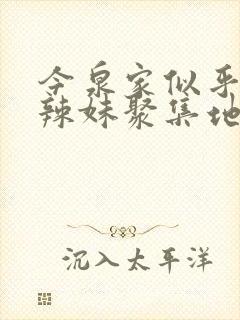 今泉家似乎
辣妹聚集地
沉入太平洋